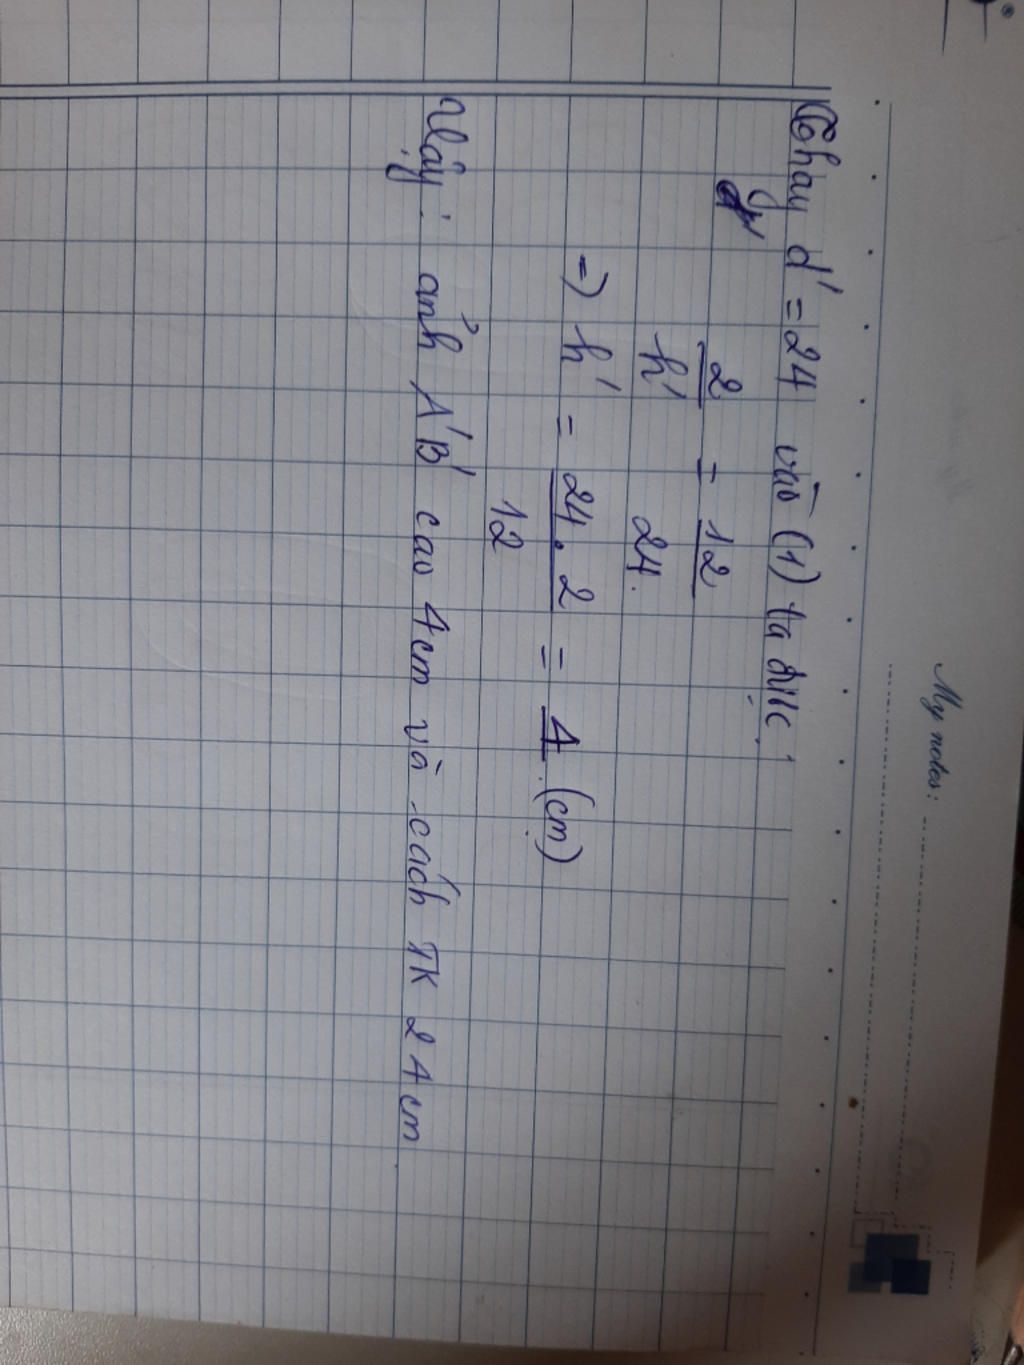 My notes:
Thay d' = 24 vào (1) ta được:
2/h' = 12/24.
=> h' = 24.2/12 = 4 (cm)
Vậy: ảnh A'B' cao 4cm và cách TK 24cm